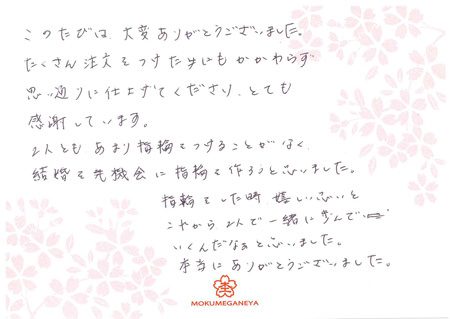 このたびは、大変ありがとうございました。
たくさん注文をつけたにもかかわらず
思い通りに仕上げてくださり、とても
感謝しています。
2人とも あまり指輪をつけることがなく、
結婚を機会に指輪を作ろうと思いました。
指輪をした時 嬉しい思いと
これから2人で一緒に歩んで
いくんだなぁと思いました。
本当にありがとうございました。
MOKUMEGANEYA